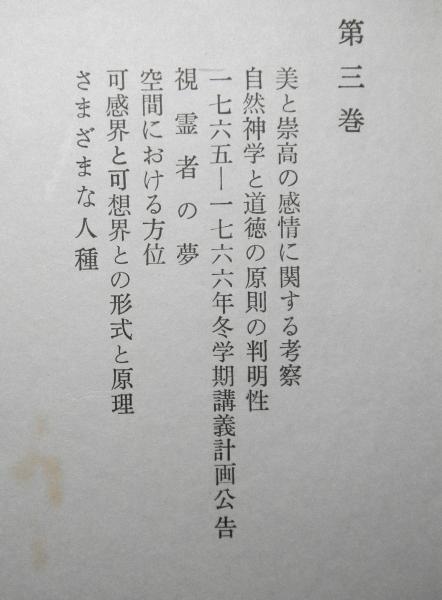 第三巻
美と崇高の感情に関する考察
自然神学と道徳の原則の判明性
一七六五―一七六六年冬学期講義計画公告
視霊者の夢
空間における方位
可感界と可想界との形式と原理
さまざまな人種